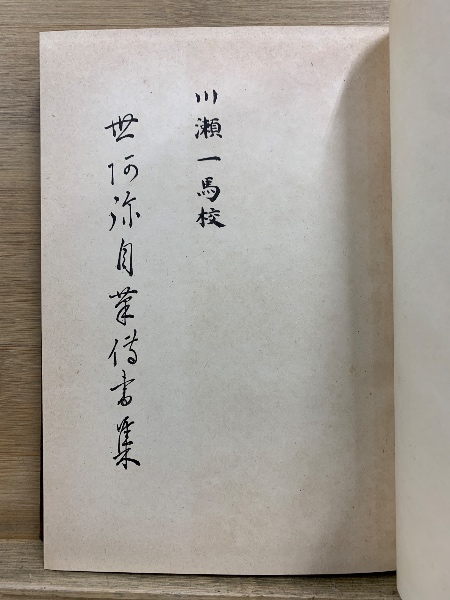 川瀬一馬校
世阿弥自筆傳書集